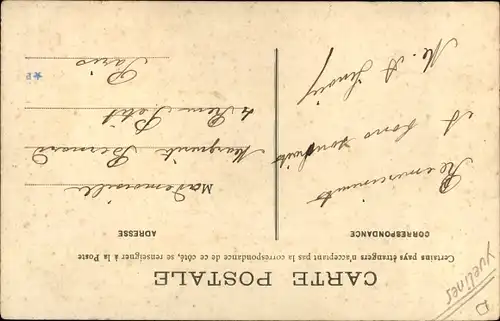 CARTE POSTALE
Certains pays étrangers n'acceptant pas la correspondance de ce côté, se renseigner à la Poste
CORRESPONDANCE
Remerciements
& bons souhaits
Me. A
ADRESSE
Mademoiselle
Marguerite Bernard
4 Rue Petit
Paris
D
Yvelines